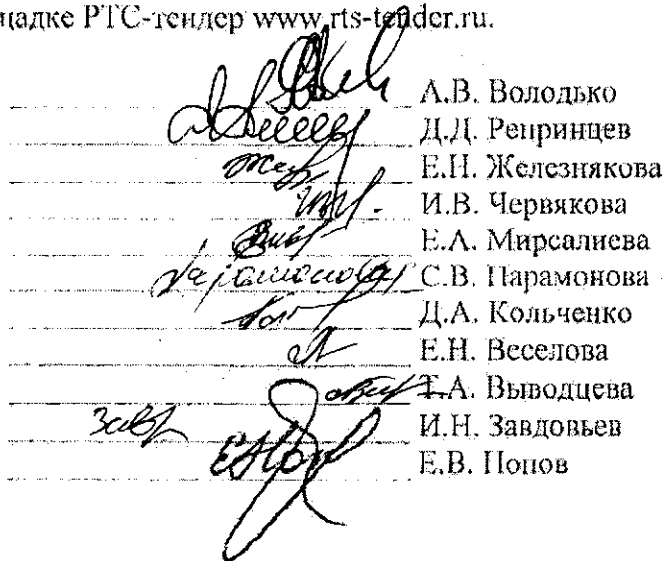 щадке РТС-тендер www.rts-tender.ru.
А.В. Володько
Д.Д. Репринцев
Е.Н. Железнякова
И.В. Червякова
Е.А. Мирсалиева
Парамонова С.В. Парамонова
Д.А. Кольченко
Е.Н. Веселова
Т.А. Выводцева
И.Н. Завдовьев
Е.В. Попов